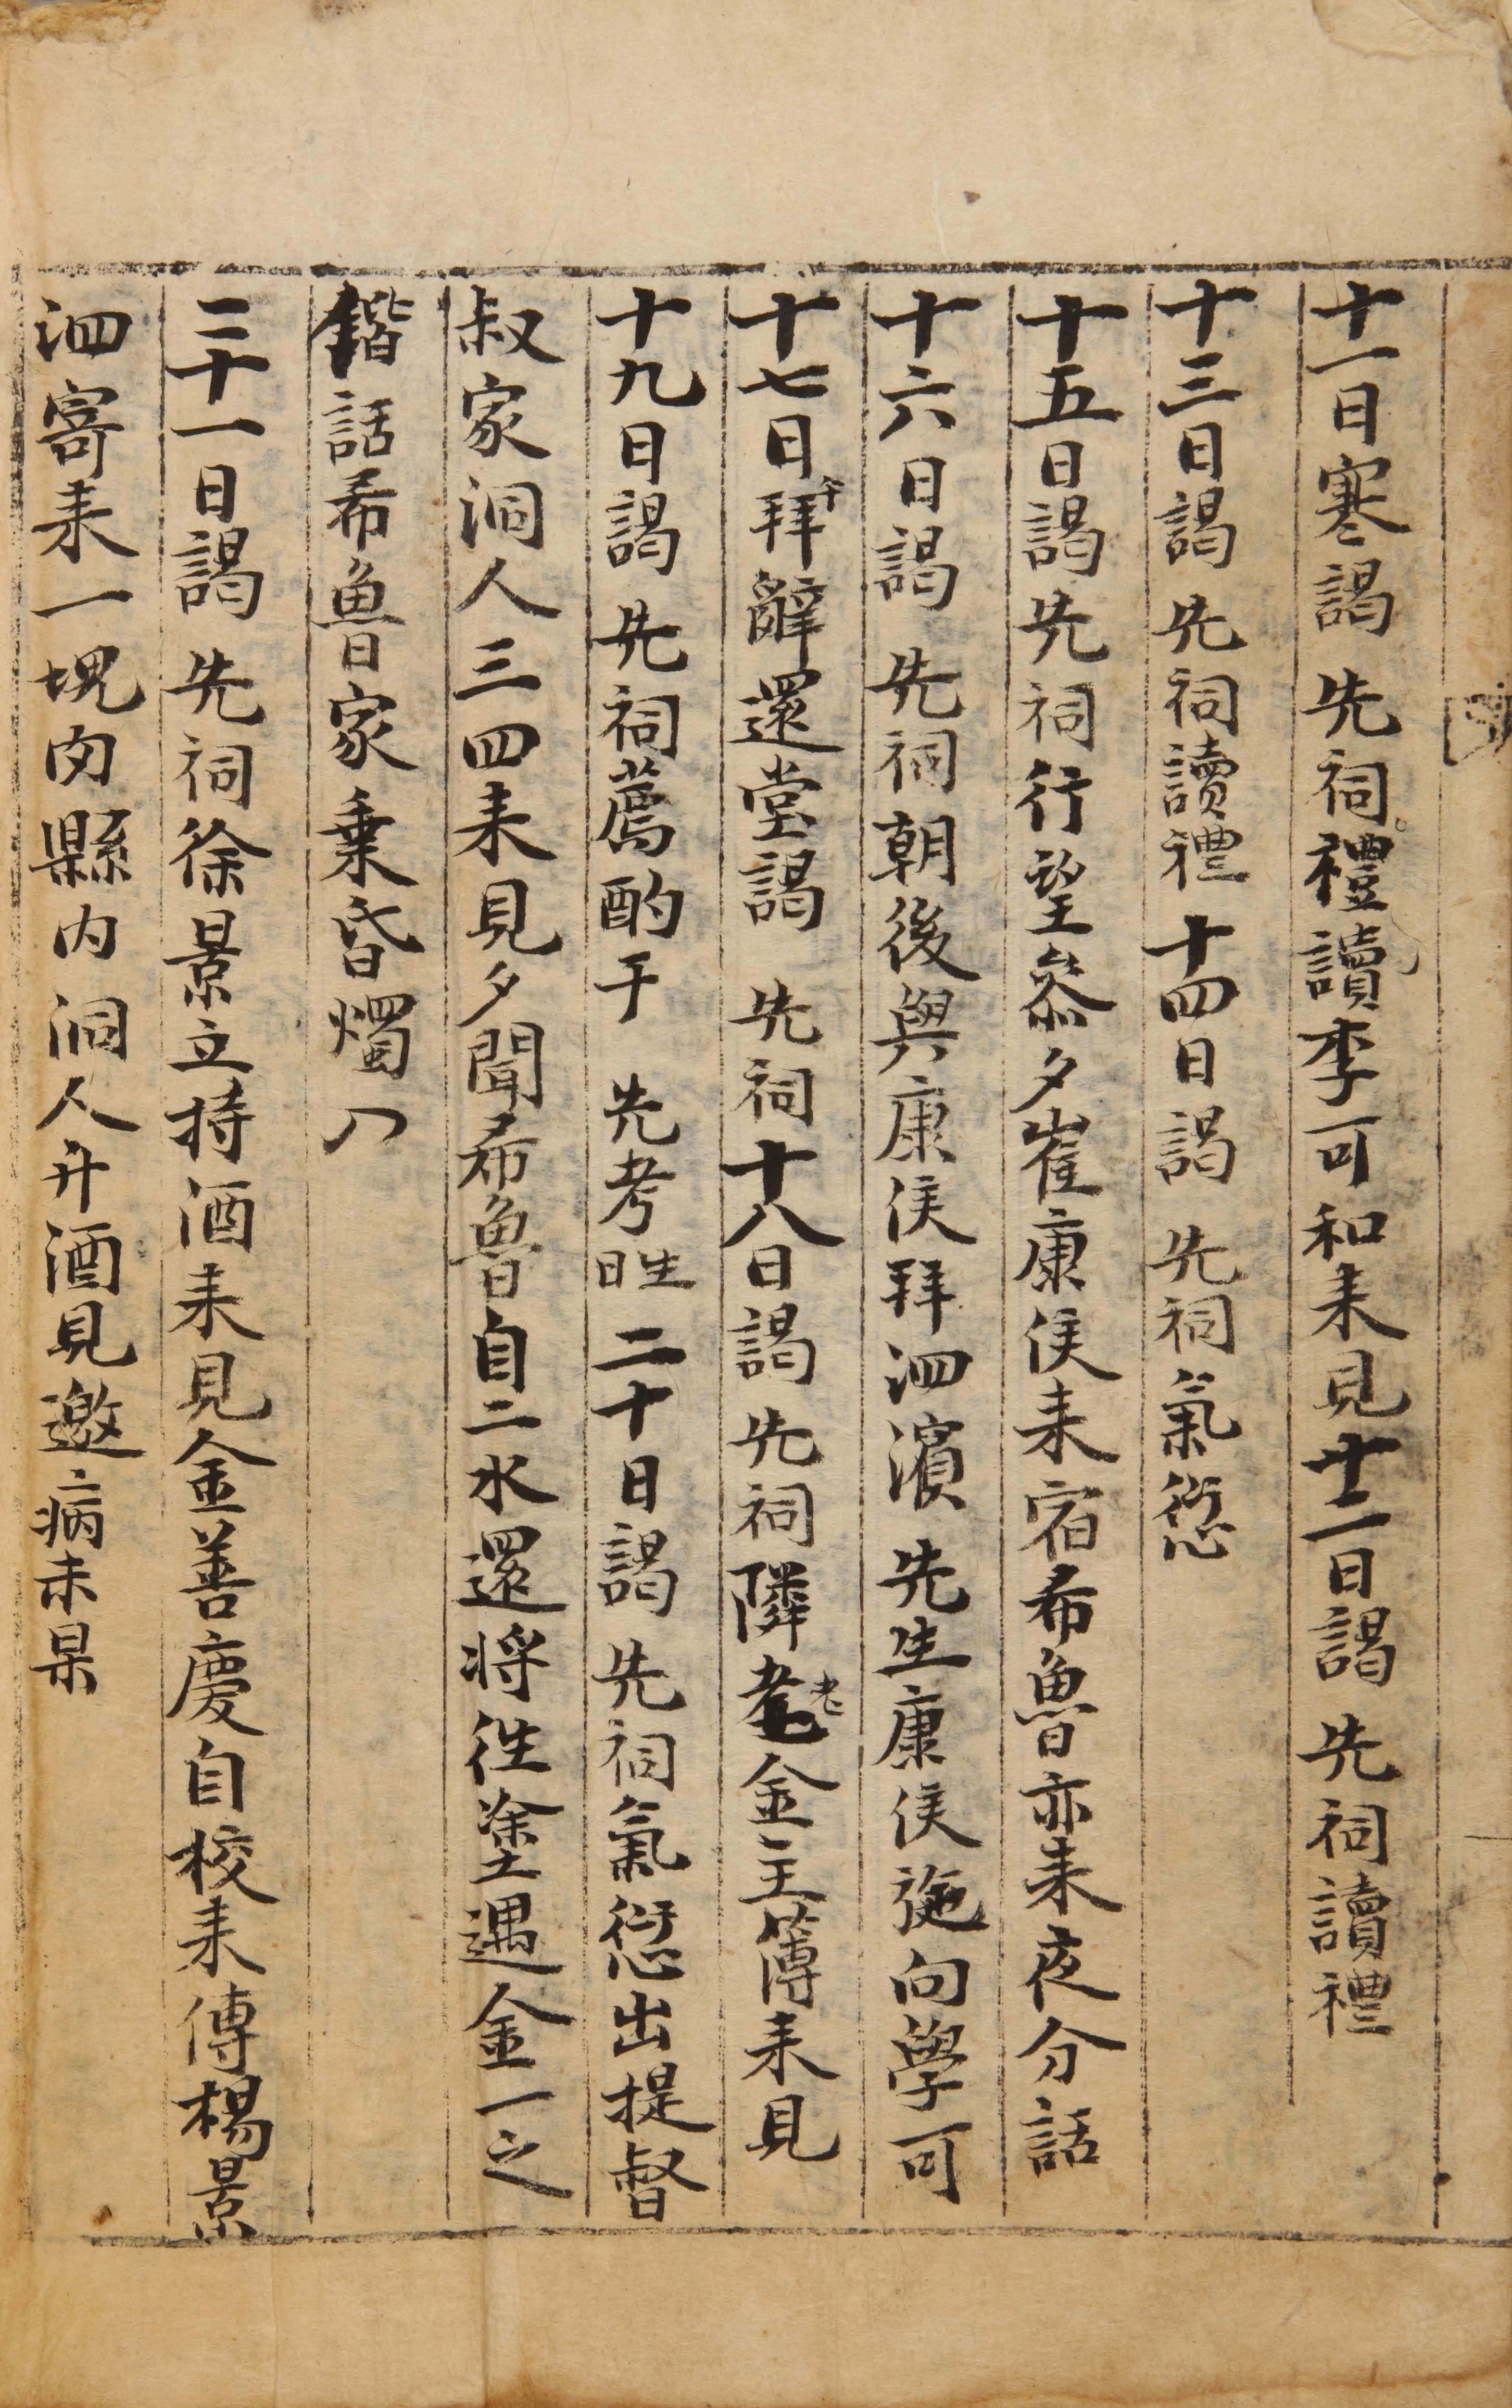 十一日寒謁　先祠禮讀李可和来見十二日謁　先祠讀禮
十三日謁　先祠讀禮　十四日謁　先祠氣愆
十五日謁先祠行望叅夕崔康侯来宿希魯亦来夜分話
十六日謁　先祠朝後與康侯拜泗濱　先生康侯迤向學可
十七日拜辭還堂謁　先祠十八日謁　先祠隣耄老金主簿来見
十九日謁　先祠薦酌于　先考生日　二十日謁　先祠氣愆出提督
叔家洞人三四来見夕聞希魯自二水還将徃塗遇金一之
鍇話希魯家乗昏燭入
二十一日謁　先祠徐景立持酒来見金善慶自校来傳楊景
泗寄来一塊肉縣内洞人升酒見邀病未果